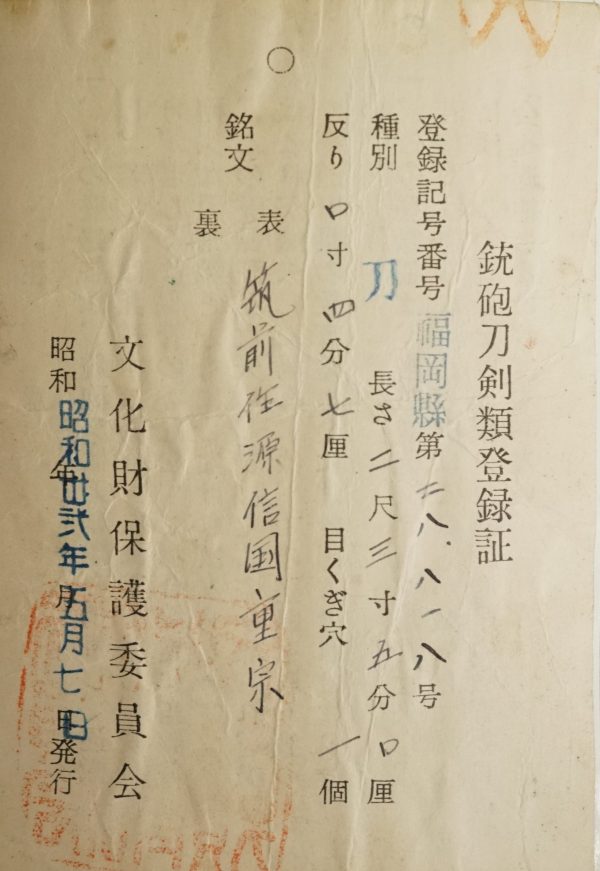 銃砲刀剣類登録証
登録記号番号 福岡縣 第二八八一八号
種別 刀 長さ 二尺三寸五分口厘
反り 口寸四分七厘 目くぎ穴 一個
銘文
表 筑前住源信国重宗
裏
文化財保護委員会
昭和 年 月 日発行
昭和卅弐年五月七日